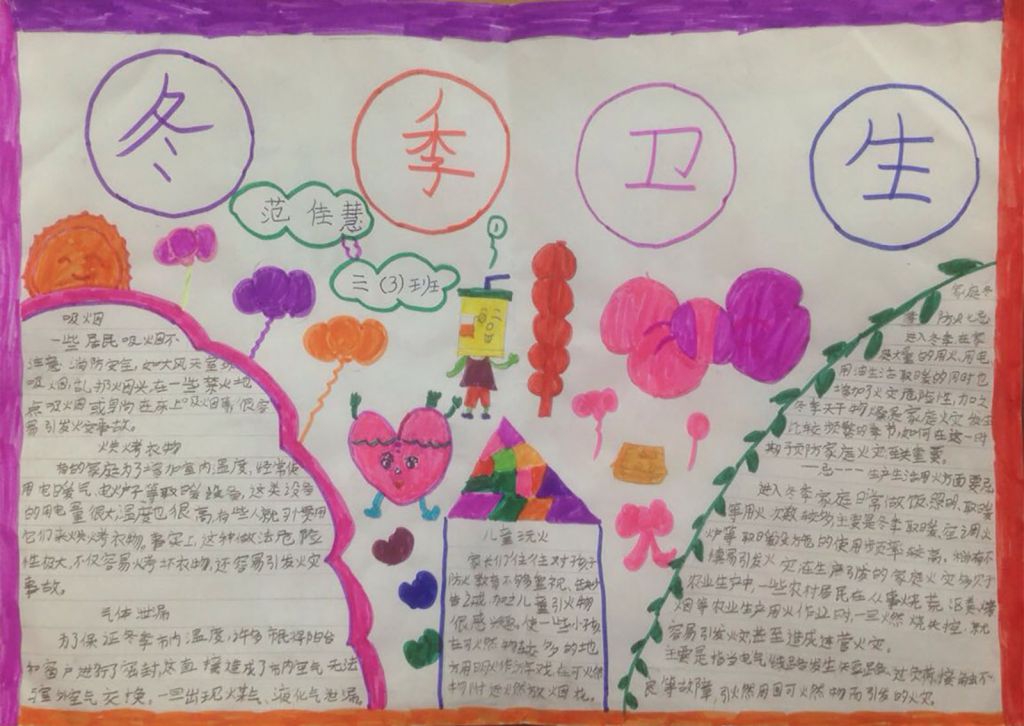 冬季卫生
范佳慧
三(3)班
吸烟
一些居民吸烟不
注意消防安全,如大风天室外
吸烟,乱扔烟头,在一些禁火地
点吸烟或早尚在床上吸烟等,很容
易引发火灾事故。
烘烤衣物
有的家庭为了增加室内温度,经常使
用电暖气、电炉子等取暖设备,这类设备
的用电量很大,温度也很高,有些人就引要用
它们来烘烤衣物。事实上,这种做法危险
性极大,不仅容易烤坏衣物,还容易引发火灾
事故。
气体泄漏
为了保证冬季市内温度,许多市民将阳台
和窗户进行了密封,这直接造成了市内空气无法
与室外空气交换。一旦出现煤气、液化气泄漏。
儿童玩火
家长们往往对孩子
防火教育不够重视,在缺少
告诫,加之儿童引火物
很感兴趣,使一些小孩
在可燃物较多的地
方用明火作游戏,在可燃
物附近火燃放烟花。
家庭冬
季防火
进入冬季在家
庭大量的用火,用电
用油生活取暖的同时也
增加了火灾危险性,加之
冬季天干物燥是家庭火灾发生
比较频繁的季节,如何在这一时
期于预防家庭火灾至关重要。
生产生活用火方面要
进入冬季家庭日常做饭、照明、取暖
等用火次数较多主要是冬季取暖,在
炉等取暖设施的使用频率较高,稍有不
慎易引发火灾在生产引发的家庭火灾多见于
农业生产中,一些农村居民在从事烧荒、
烟等农业生产用火作业时,一旦燃烧失控,就
容易引发火灾甚至造成连营火灾。
主要是指当电气线路发生短路、过负荷、接触不
良等故障,引燃周围可燃物而引发的火灾。